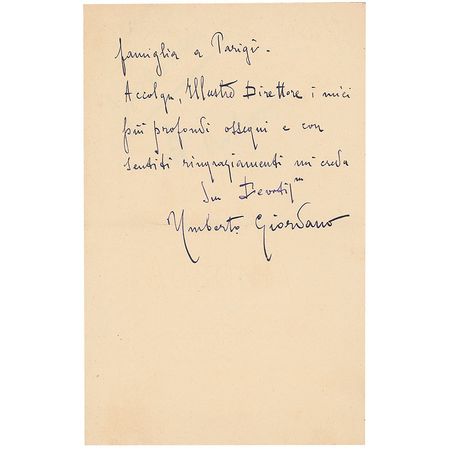 famiglia a Parigi.
Accolga, Illustre Direttore i miei
più profondi ossequi e con
sentiti ringraziamenti mi creda
Suo Devotissmo
Umberto Giordano